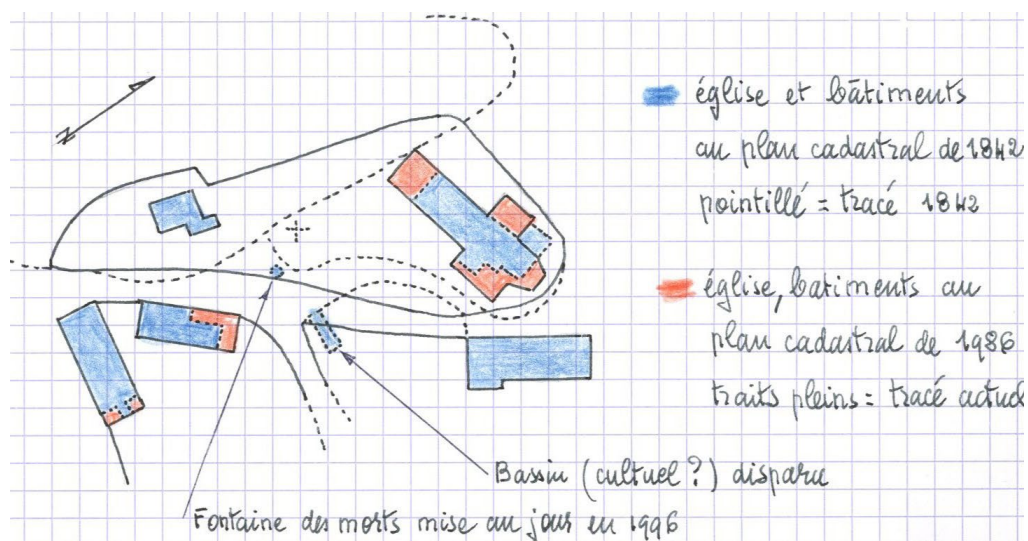 N
église et bâtiments
au plan cadastral de 1842
pointillé = tracé 1842
église, batiments au
plan cadastral de 1986
traits pleins = tracé actuel
Bassin (cultuel ?) disparu
Fontaine des morts mise au jour en 1996